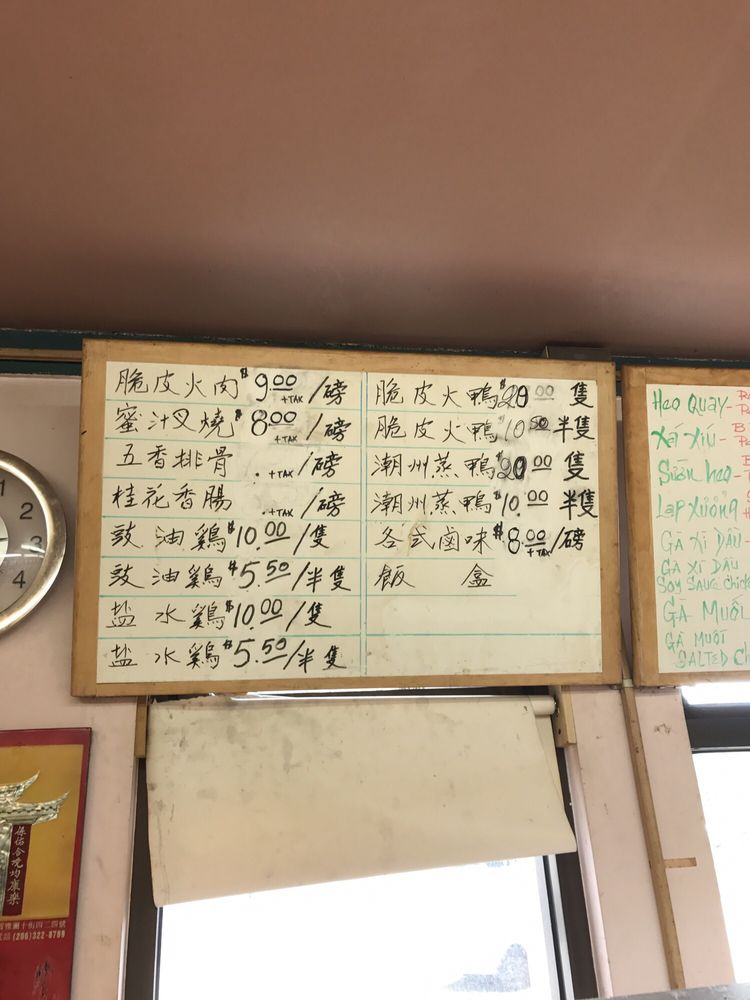 脆皮火肉 $9.00 +TAX /磅
蜜汁叉燒 $8.00 +TAX /磅
五香排骨 . +TAX /磅
桂花香腸 . +TAX /磅
豉油鷄 $10.00 /隻
豉油鷄 $5.50 /半隻
盐水鷄 $10.00 /隻
盐水鷄 $5.50 /半隻
脆皮火鴨 $20.00 隻
脆皮火鴨 10.50 半隻
潮州蒸鴨 $20.00 隻
潮州蒸鴨 $10.00 半隻
各式鹵味 $8.00 +TAX /磅
飯盒
Heo Quay-
Xá Xíu-
Sườn heo-
Lạp Xưởng
GÀ XÌ DẦU
GÀ XÌ DẦU
SOY SAUCE
GÀ MUỐI
GÀ MUỐI
SALTED
1
2
3
4
保佑合境均康樂
街四二四號
(206)322-8799